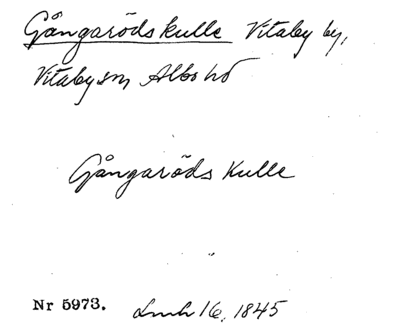 Gångaröds kulle Vitaby by,
Vitaby sn Albo hd
Gångaröds Kulle
Nr 5973. Lmh 16, 1845